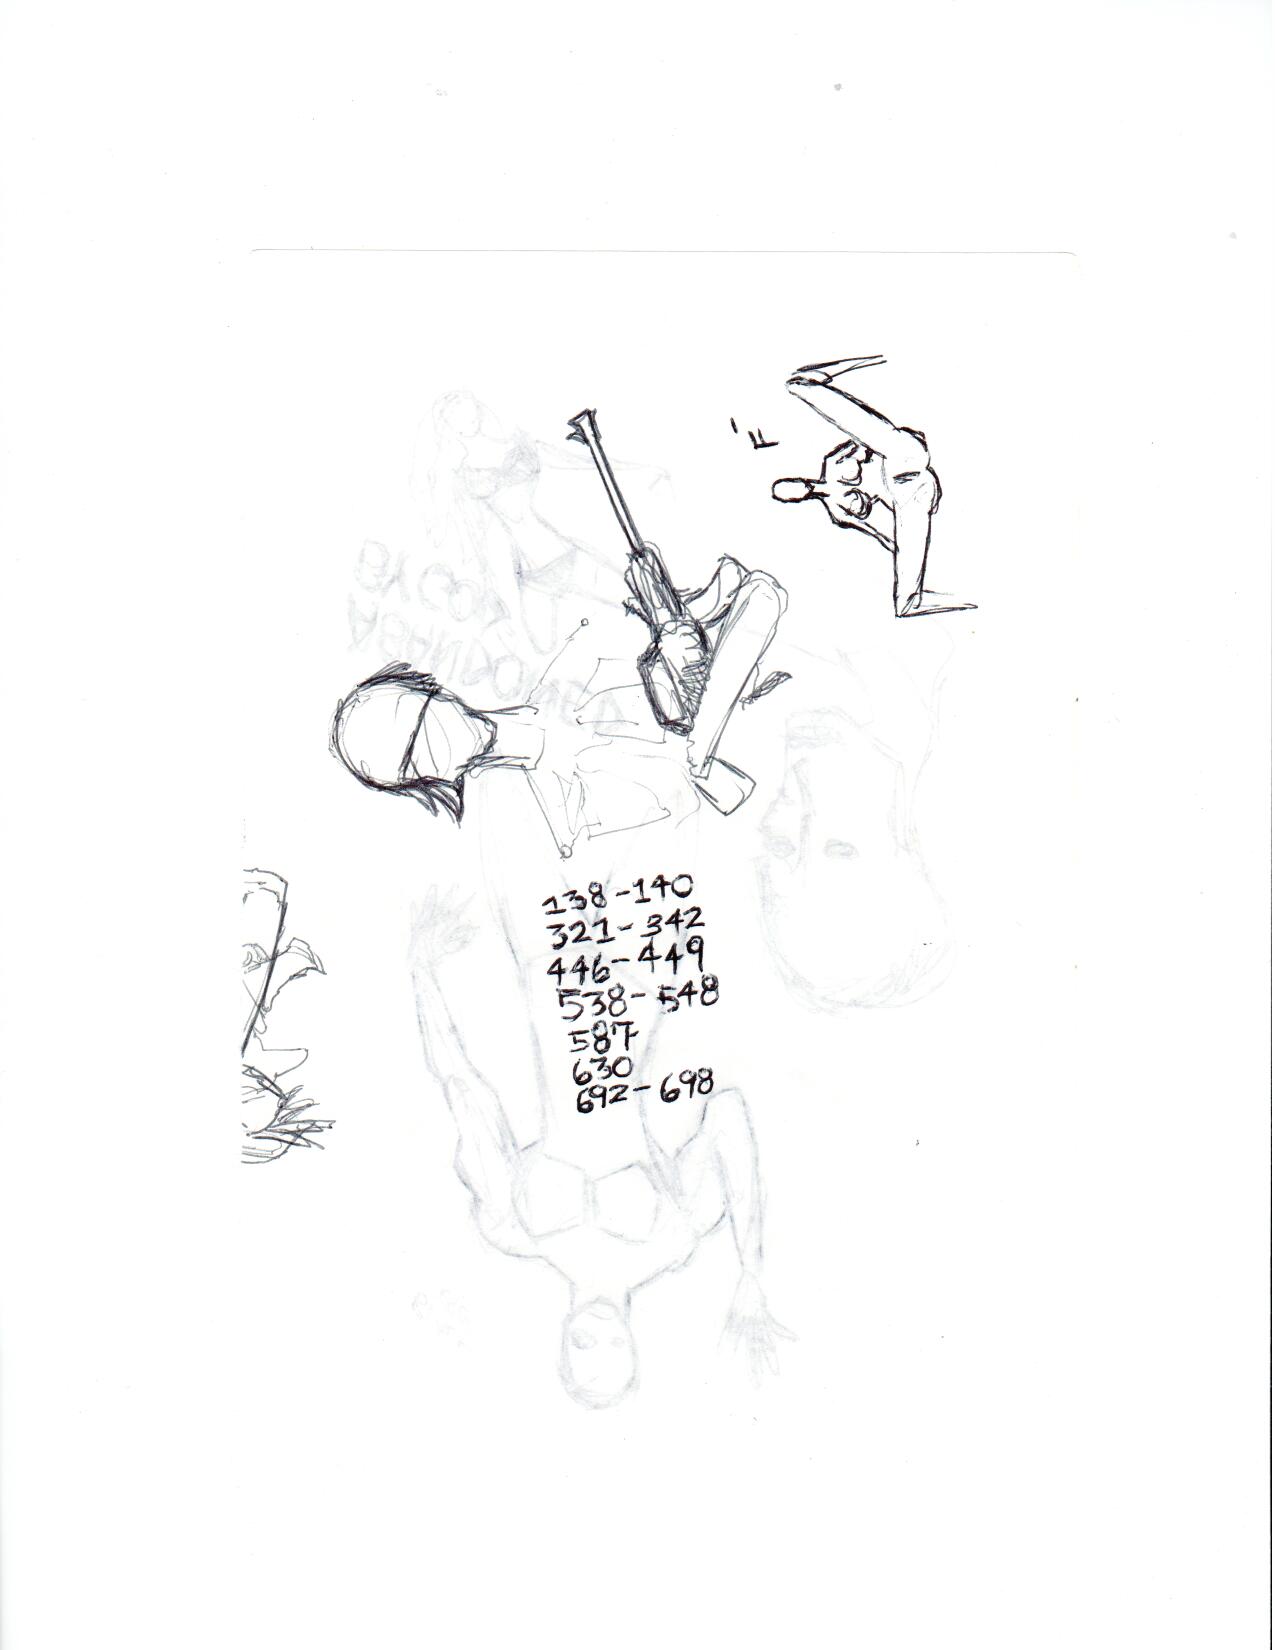 138-140
321-342
446-449
538-548
587
630
692-698